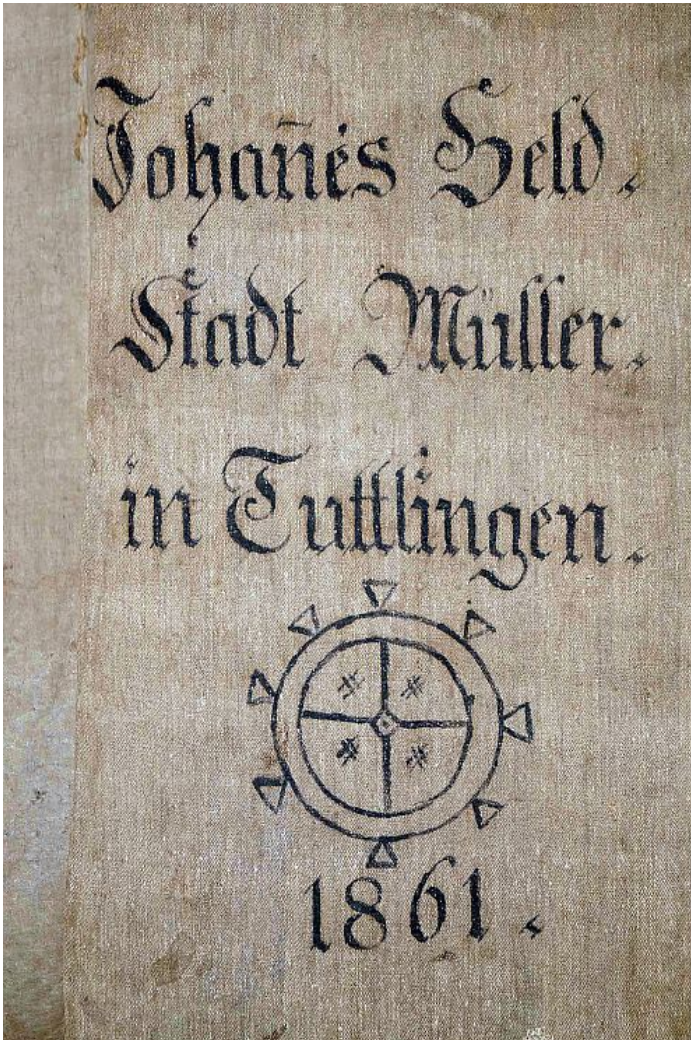 Johan̄es Held.
Stadt Müller.
in Tuttlingen.
1861.